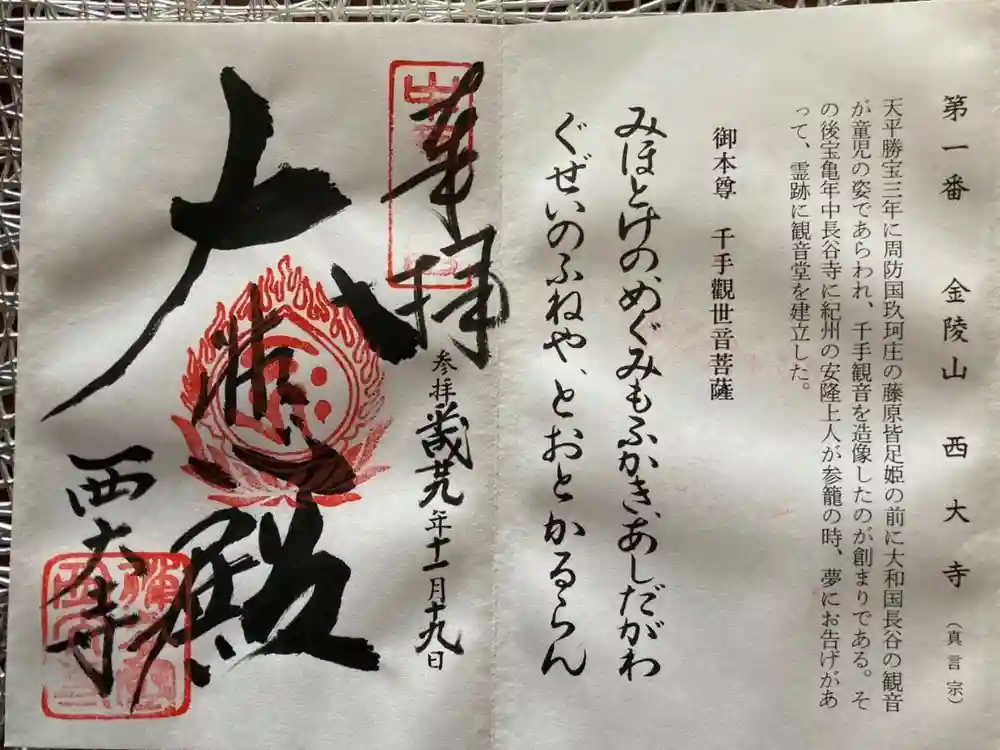 第一番　金陵山　西大寺（真言宗）
天平勝宝三年に周防国玖珂庄の藤原皆足姫の前に大和国長谷の観音
が童児の姿であらわれ、千手観音を造像したのが創まりである。そ
の後宝亀年中長谷寺に紀州の安隆上人が参籠の時、夢にお告げがあ
って、霊跡に観音堂を建立した。
御本尊　千手觀世音菩薩
みほとけの、めぐみもふかき、あしだがわ
ぐぜいのふねや、とおとかるらん
奉拝
参拝 年十一月十九日
大悲殿
西大寺